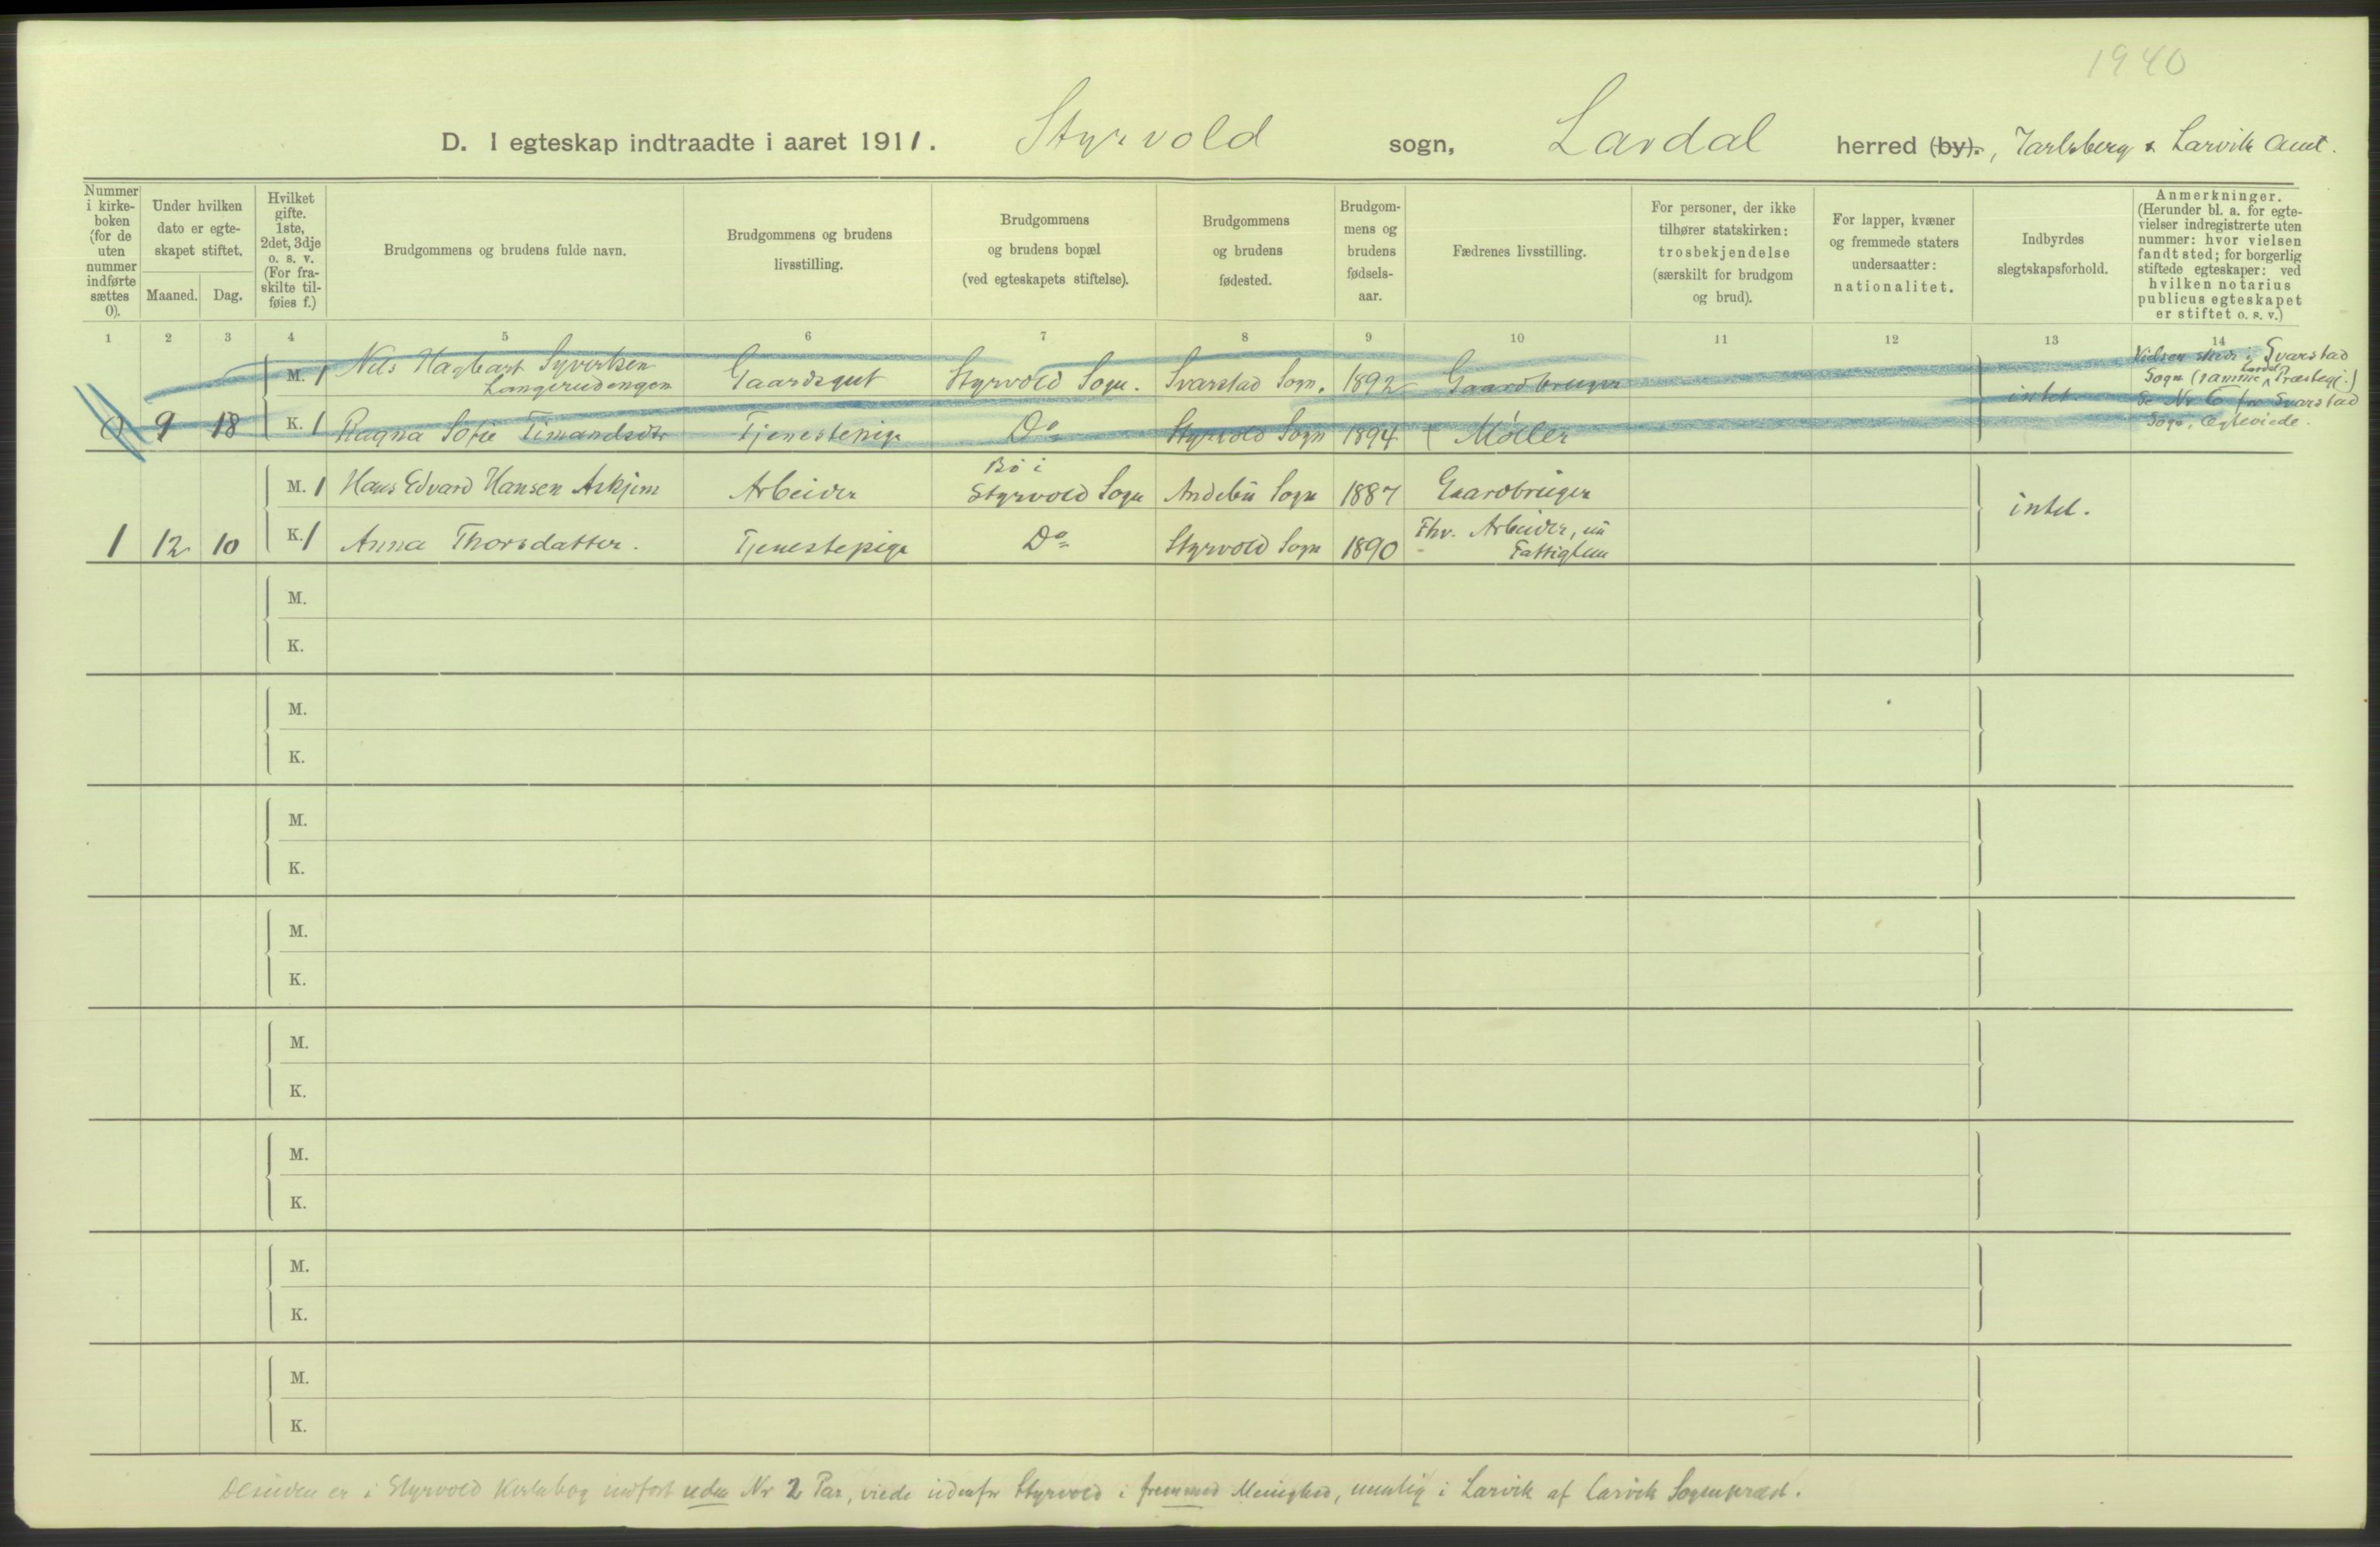 1940
D. I egteskap indtraadte i aaret 1911. Styrvold sogn, Lardal herred (by)., Jarlsberg & Larvik Amt.
Nummer i kirke-boken (for de uten nummer indførte sættes 0).
Under hvilken dato er egte-skapet stiftet.
Maaned. Dag.
Hvilket gifte. 1ste, 2det, 3dje o. s. v. (For fra-skilte til-føies f.)
Brudgommens og brudens fulde navn.
Brudgommens og brudens livsstilling.
Brudgommens og brudens bopæl (ved egteskapets stiftelse).
Brudgommens og brudens fødested.
Brudgom-mens og brudens fødsels-aar.
Fædrenes livsstilling.
For personer, der ikke tilhører statskirken: trosbekjendelse (særskilt for brudgom og brud).
For lapper, kvæner og fremmede staters undersaatter: nationalitet.
Indbyrdes slegtskapsforhold.
Anmerkninger. (Herunder bl. a. for egte-vielser indregistrerte uten nummer: hvor vielsen fandt sted; for borgerlig stiftede egteskaper: ved hvilken notarius publicus egteskapet er stiftet o. s. v.)
1 2 3 4 5 6 7 8 9 10 11 12 13 14
M. 1 Nils Hagbart Syvertsen Langerudengen Gaardsgut Styrvold Sogn. Svarstad Sogn. 1892 Gaardbruger
0 9 18 K. 1 Ragna Sofie Timandsdtr Tjenestepige Do Styrvold Sogn 1894 + Møller
intet.
Vielsen skede i Svarstad
Sogn (samme Lardal Præstegj.)
Se Nr 6 for Svarstad
Sogn, Egteviede.
M. 1 Hans Edvard Hansen Askjem Arbeider Bø i Styrvold Sogn Andebu Sogn 1887 Gaardbruger
1 12 10 K. 1 Anna Thorsdatter. Tjenestepige Do Styrvold Sogn 1890 Fhv. Arbeider, nu Fattiglem
intet.
M.
K.
M.
K.
M.
K.
M.
K.
M.
K.
M.
K.
M.
K.
M.
K.
Desuden er i Styrvold Kirkebog indført uden Nr 2 Par, viede udenfor Styrvold i fremmed Menighed, nemlig i Larvik af Larvik Sognepræst.